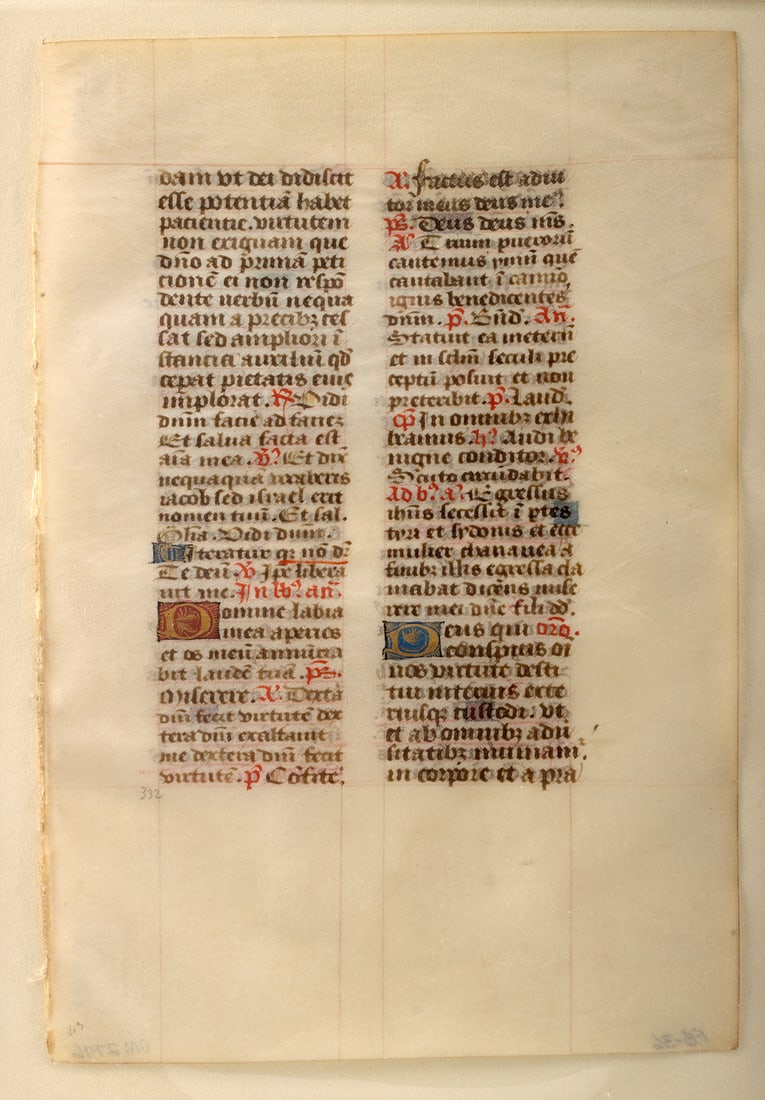 dam vt dei didiscit
esse potentiā habet
pacientie. virtutem
non exiguam que
dn̄o ad primā peti
cionē ei non respō
dente verbū nequa
quam a precibꝫ ces
sat sed ampliori ī
stancia auxiliū qđ
ceperat pietatis eius
implorat. R̃ Vidi
dn̄m facie ad faciē
Et salua facta est
aīa mea. V̕ Et dix̄
nequaquā vocaberis
iacob sed israel erit
nomen tuū. Et sal.
Vidi dn̄m.
iteratur qr̄ nō dr̄
Te deū. V̕ Ip̄e libera
uit me. In lꝰ. an̄.
Domine labia
mea aperies
et os meū annūcia
bit laudē tuā. ps.
Miserere. A. Dextera
dn̄i fecit virtutē dex
tera dn̄i exaltauit
me dextera dn̄i fecit
virtutē. p̄ Cōfite.
332
A. factus est adiu
tor meus deus me.
ps. Deus deus m̄s.
A Trium puerorū
cantemus ymnū quē
cantabant ī camīo,
ignis benedicentes
dn̄m. p. Bn̄d. An̄.
Statuit ea ineternū
et in sclm̄ seculi pre
ceptū posuit et non
preteribit. p. Laud.
cp̄ In omnibꝫ exhi
beamus. hꝰ. Audi be
nigne conditor. v̕
Scuto circūdabit.
Ad bꝰ. a. Egressus
ihūs secessit ī ptes
tyri et sydonis et ecce
mulier chananea a
finibꝫ illis egressa cla
mabat dicens mise
rere mei dn̄e fili dđ.
Deus qui orō.
conspicis oī
nos virtute desti
tui interius exte
riusqꝫ custodi. vt
et ab omnibꝫ adu
sitatibꝫ muniam̄.
in corpore et a pra